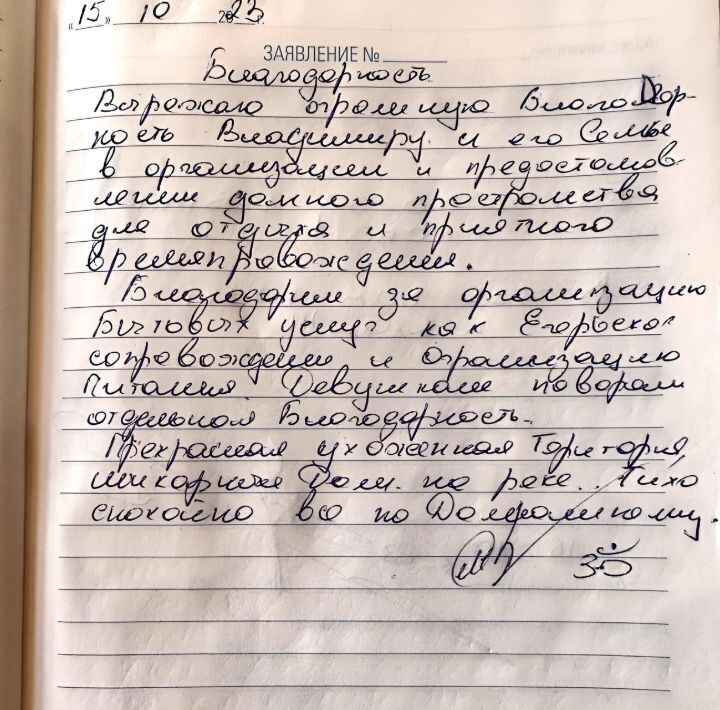 "15" 10 2023
ЗАЯВЛЕНИЕ №
Благодарность
Выражаю огромную Благодар-
ность Владимиру и его Семье
в организации и предостав-
лении данного пространства
для отдыха и приятного
времяпровождения.
Благодарим за организацию
Бытовых услуг как Егерьское
сопровождение и огранизацию
Питания. Девушкам поварам
отдельная Благодарность.
Прекрасная ухоженная Територия,
шикарный Дом на реке. Тихо
спокойно все по Домашнему.